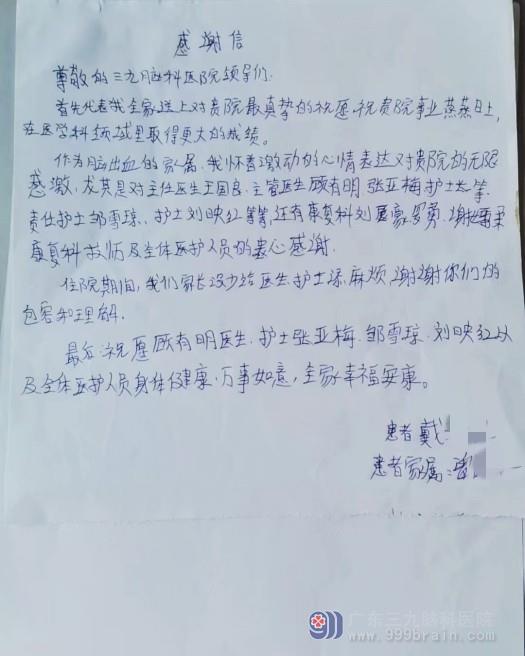 感谢信
尊敬的三九脑科医院领导们:
首先代表我全家送上对贵院最真挚的祝愿,祝贵院事业蒸蒸日上,
在医学科领域里取得更大的成绩。
作为脑出血的家属,我怀着激动的心情表达对贵院的无限
感激,尤其是对主任医生王国良、主管医生顾有明、张亚梅护士长等,
责任护士邹雪琼、护士刘映红等等,还有康复科刘
康复科技师及全体医护人员的衷心感谢.
住院期间,我们家长没少给医生、护士添麻烦,谢谢你们的
包容和理解.
最后祝愿顾有明医生、护士张亚梅、邹雪琼、刘映红以
及全体医护人员身体健康,万事如意,全家幸福安康。
患者戴
患者家属:
广东三九脑科医院
www.999brain.com